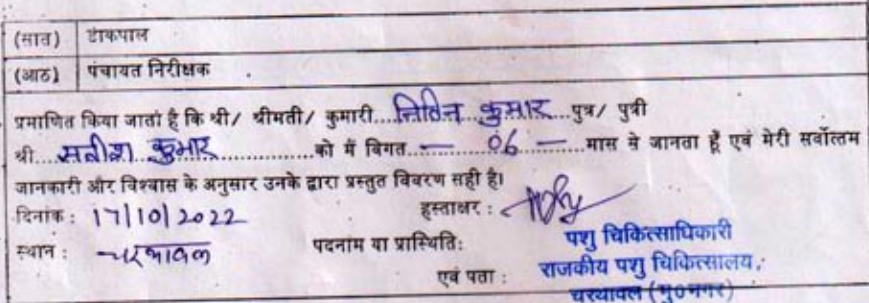 (सात) डाकपाल
(आठ) पंचायत निरीक्षक
प्रमाणित किया जाता है कि श्री/ श्रीमती/ कुमारी....नितिन कुमार....पुत्र/ पुत्री
श्री....सतीश कुमार....................को में विगत....— 06 —....मास से जानता हूँ एवं मेरी सर्वोत्तम
जानकारी और विश्वास के अनुसार उनके द्वारा प्रस्तुत विवरण सही है।
दिनांक : 17/10/2022 हस्ताक्षर :
स्थान : चरथावल पदनाम या प्रास्थिति: पशु चिकित्साधिकारी
एवं पता : राजकीय पशु चिकित्सालय,
चरथावल (मु०नगर)